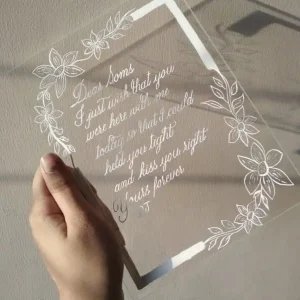 Dear Soms
I just wish that you
were here with me
today so that I could
hold you tight
and kiss you right
Yours forever